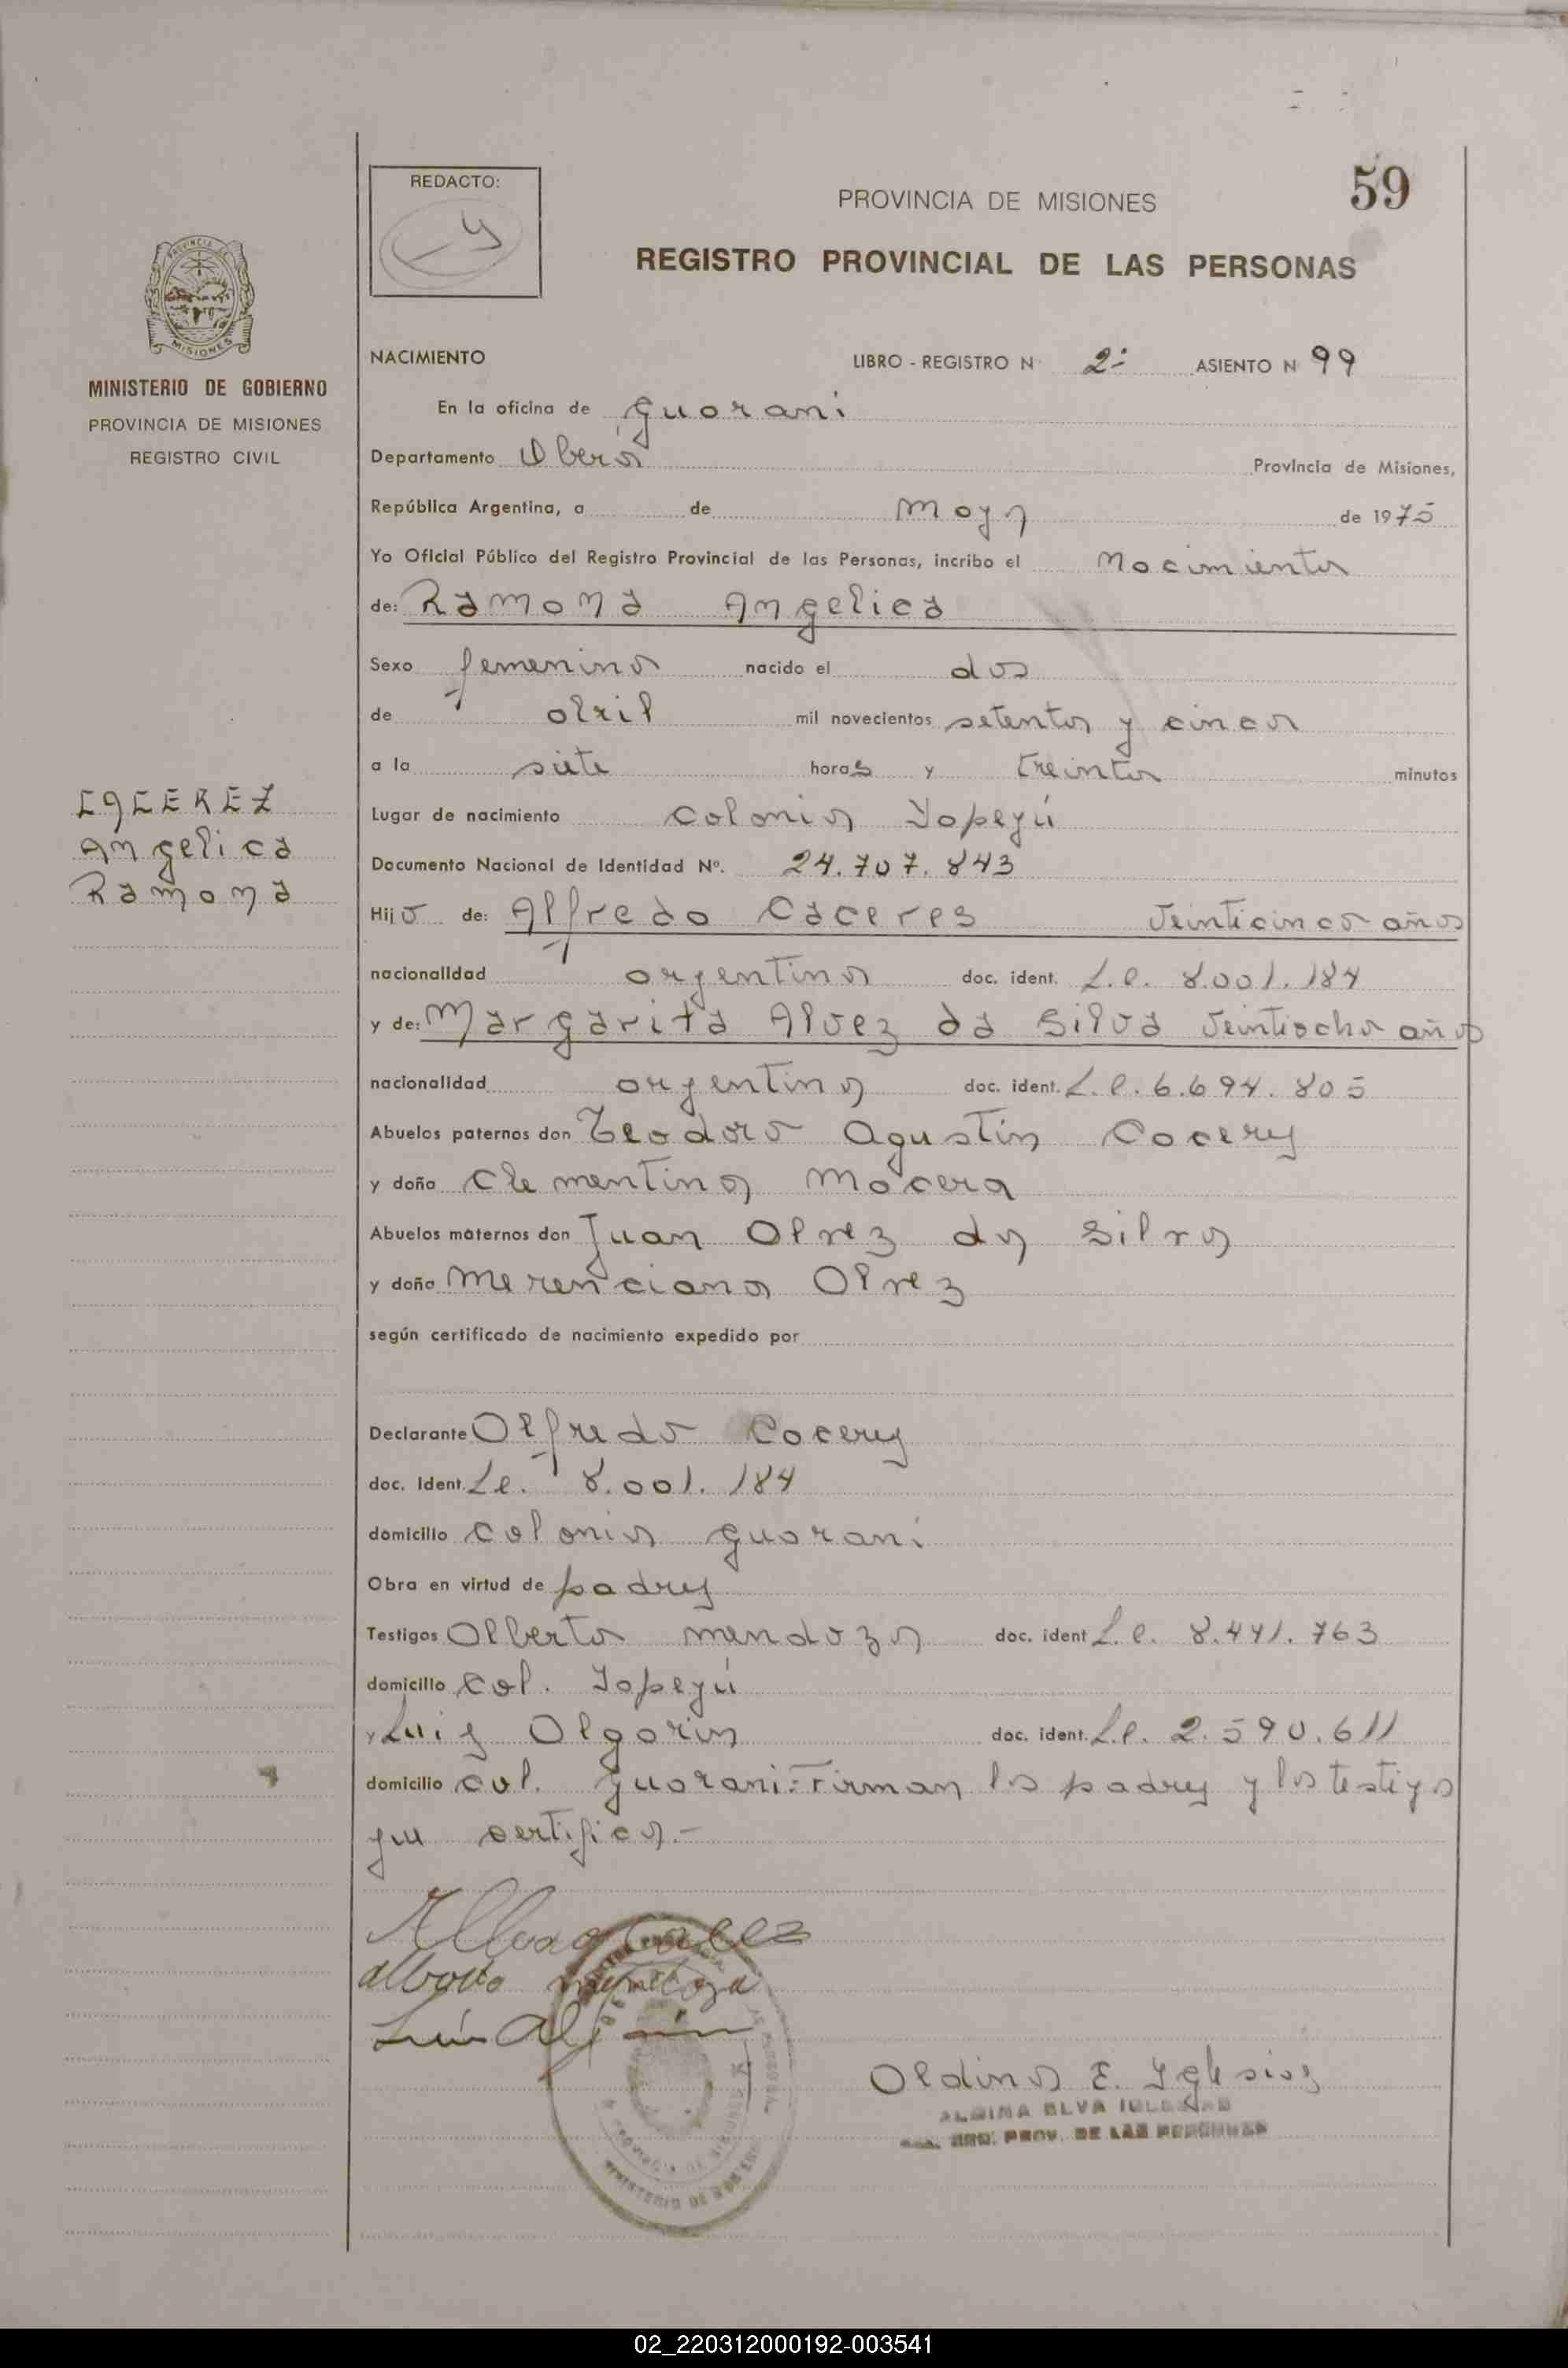 59
REDACTO:
PROVINCIA DE MISIONES
REGISTRO PROVINCIAL DE LAS PERSONAS
MISIONES
MINISTERIO DE GOBIERNO
PROVINCIA DE MISIONES
REGISTRO CIVIL
CACEREZ
Angelica
Ramona
NACIMIENTO LIBRO - REGISTRO N 2- ASIENTO N 99
En la oficina de Guarani
Departamento Oberá Provincia de Misiones,
República Argentina, a de mayo de 1975
Yo Oficial Público del Registro Provincial de las Personas, incribo el Nacimiento
de: Ramona Angelica
Sexo femenino nacido el dos
de abril mil novecientos setenta y cinco
a la siete horas y treinta minutos
Lugar de nacimiento Colonia Yapeyú
Documento Nacional de Identidad Nº. 24.707.843
Hijo de: Alfredo Caceres Veinticinco años
nacionalidad argentina doc. ident. L.e. 8.001.184
y de: Margarita Alvez da Silva Veintiocho años
nacionalidad argentina doc. ident. L.e. 6.694.805
Abuelos paternos don Teodoro Agustin Caceres
y doña Clementina Macera
Abuelos maternos don Juan Alvez da Silva
y doña Merenciana Alvez
según certificado de nacimiento expedido por
Declarante Alfredo Caceres
doc. Ident. Le. 8.001.184
domicilio Colonia Guarani
Obra en virtud de padres
Testigos Alberto Mendoza doc. ident L.e. 8.441.763
domicilio Col. Yapeyú
y Luis Algarin doc. ident. L.e. 2.590.611
domicilio Col. Guarani = Firman los padres y los testigos
que certifica.-
alberto mendoza
Luis
Aldina E. Iglesias
ALDINA ELVA IGLESIAS
REG. PROV. DE LAS PERSONAS
MINISTERIO DE GOBIERNO
02_220312000192-003541